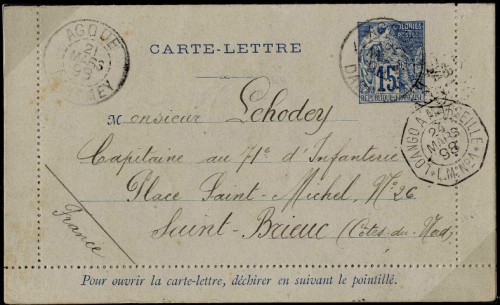 LAGOUÉ
21
MARS
93
DAHOMEY
CARTE-LETTRE
COLONIES
POSTES
15
Monsieur Lehodey
Capitaine au 71e d'Infanterie
Place Saint-Michel, No 26
Saint-Brieuc (Côtes-du-Nord)
France
LOANGO A MARSEILLE
24
MARS
93
L.M. No 1
Pour ouvrir la carte-lettre, déchirer en suivant le pointillé.